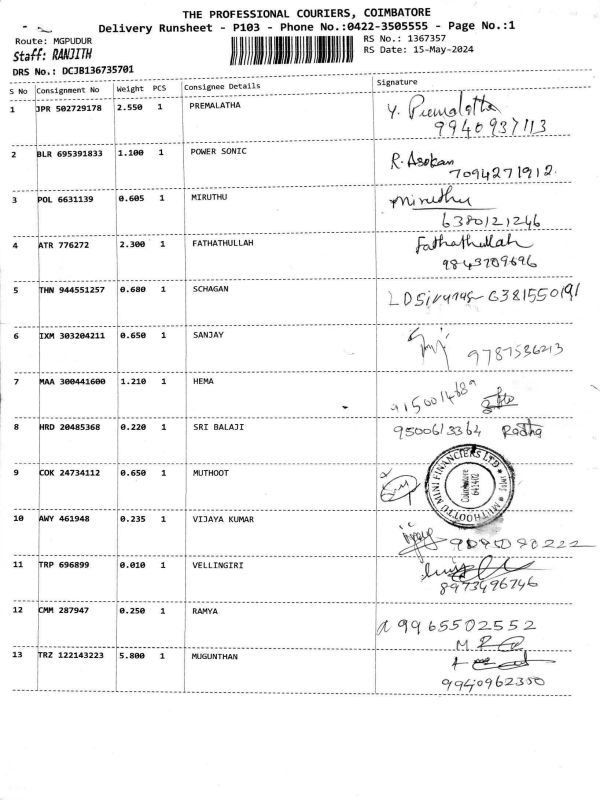 THE PROFESSIONAL COURIERS, COIMBATORE
Delivery Runsheet - P103 - Phone No.:0422-3505555 - Page No.:1
Route: MGPUDUR
RS No.: 1367357
Staff: RANJITH
RS Date: 15-May-2024
DRS No.: DCJB136735701
S No Consignment No Weight PCS Consignee Details Signature
1 JPR 502729178 2.550 1 PREMALATHA Y. Premalatha
9940937113
2 BLR 695391833 1.100 1 POWER SONIC R. Asokan
7094271912
3 POL 6631139 0.605 1 MIRUTHU miruthu
6380121246
4 ATR 776272 2.300 1 FATHATHULLAH Fathathullah
9843709696
5 THN 944551257 0.680 1 SCHAGAN
6381550191
6 IXM 303204211 0.650 1 SANJAY
9787536213
7 MAA 300441600 1.210 1 HEMA
8 HRD 20485368 0.220 1 SRI BALAJI 9500613364 Radha
9 COK 24734112 0.650 1 MUTHOOT
MUTHOOTTU MINI FINANCIERS LTD
Coimbatore
10 AWY 461948 0.235 1 VIJAYA KUMAR
11 TRP 696899 0.010 1 VELLINGIRI
8973496746
12 CMM 287947 0.250 1 RAMYA
9965502552
13 TRZ 122143223 5.800 1 MUGUNTHAN
9940962350